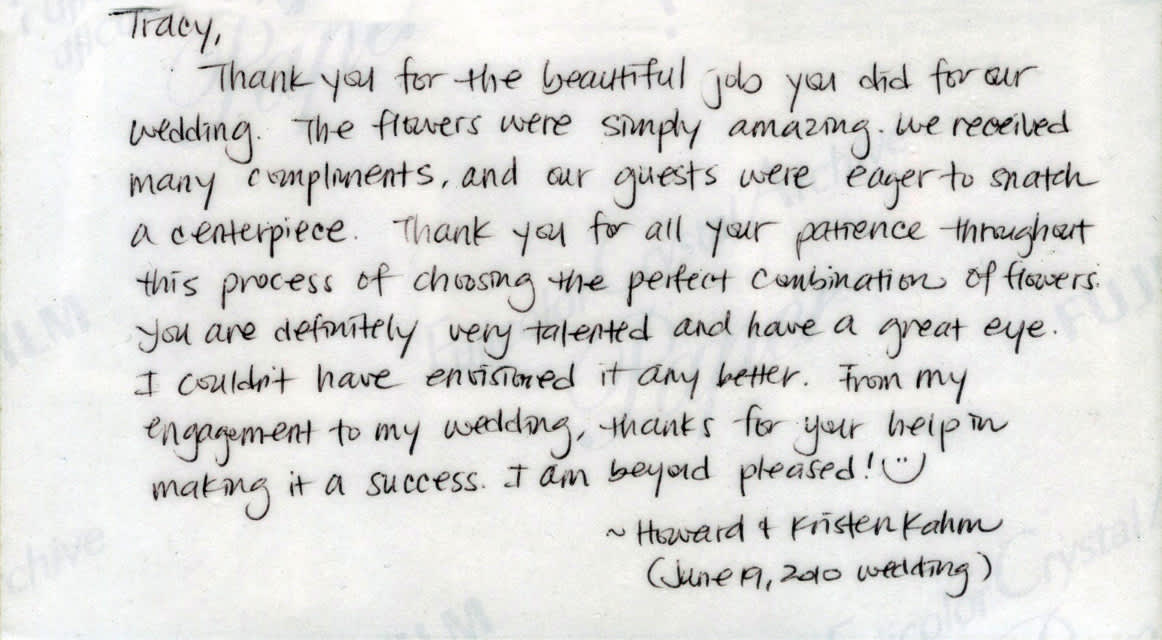 Tracy,
Thank you for the beautiful job you did for our
wedding. The flowers were simply amazing. We received
many compliments, and our guests were eager to snatch
a centerpiece. Thank you for all your patience throughout
this process of choosing the perfect combination of flowers.
You are definitely very talented and have a great eye.
I couldn't have envisioned it any better. From my
engagement to my wedding, thanks for your help in
making it a success. I am beyond pleased! :)
~ Howard + Kristen Kahm
(June 19, 2010 wedding)
FUJI
ILM
chive
Crystal